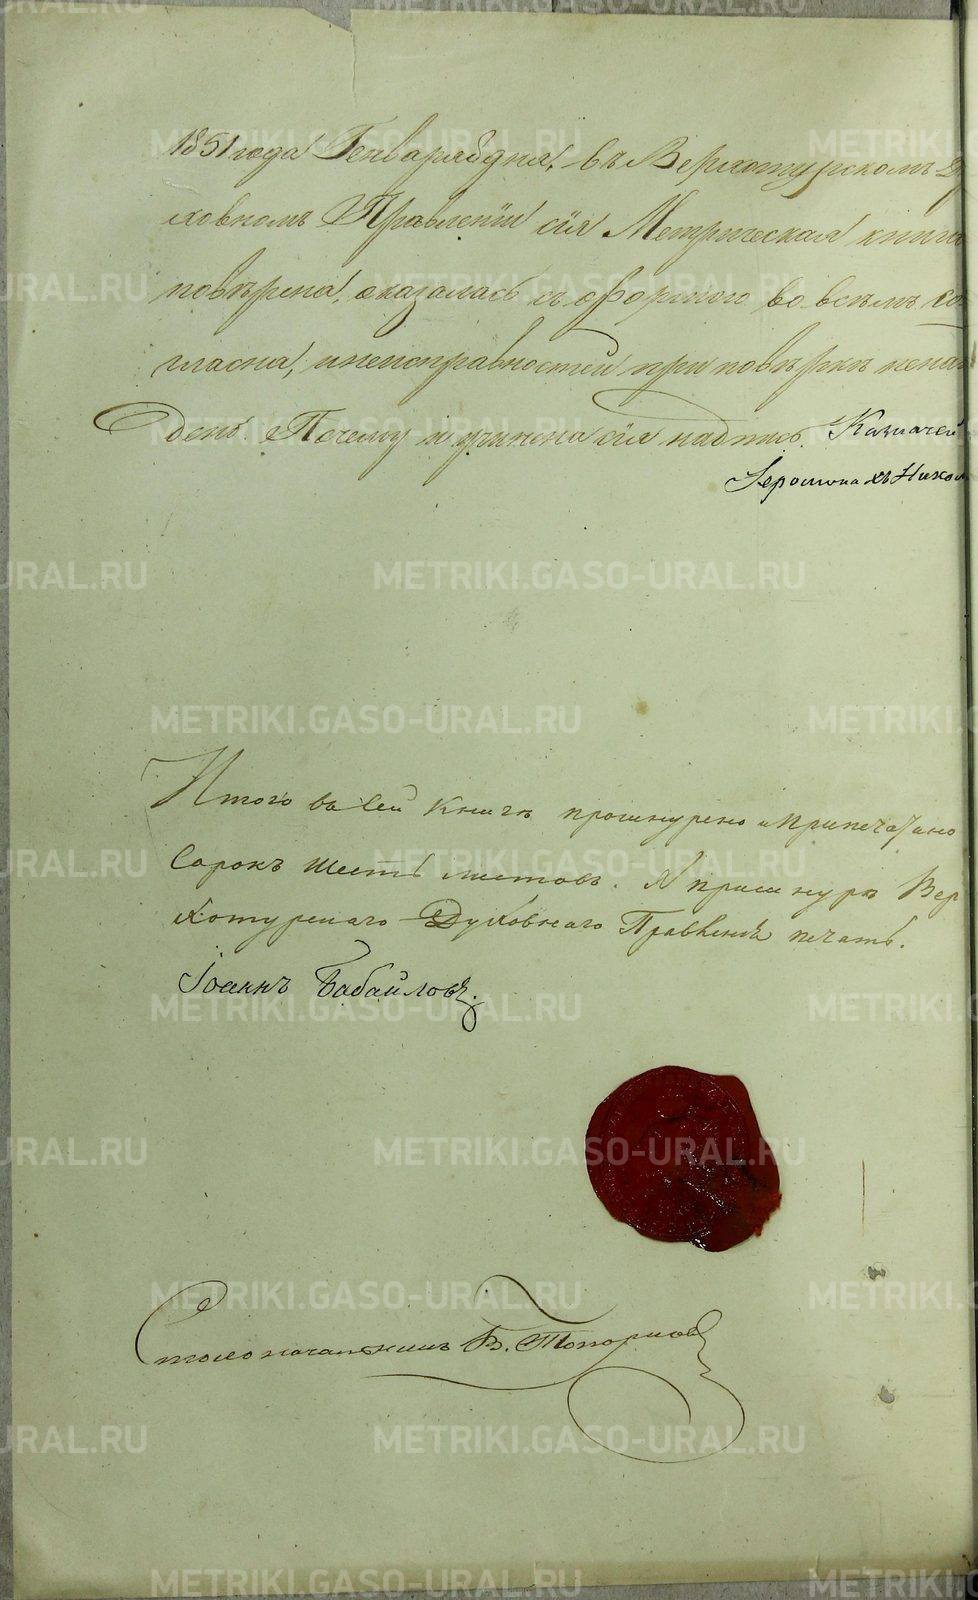 1851 года Генваря 8 дня, въ Верхотурскомъ Ду
ховномъ Правленіи сія Метрическая книга
повѣрена, оказалась съ формою во всемъ со
гласна, и неисправностей при повѣркѣ ненай
дено. Почему и учинена сія надпись. Казначей
Іеромонахъ Никол
Итого въ сей Книгѣ прошнурено и припечатано
Сорокъ шесть листовъ. Я при шнурѣ Вер
хотурскаго Духовнаго Правленія печать.
Іоаннъ Бабайловъ.
Столоначальникъ В. Топорковъ
METRIKI.GASO-URAL.RU